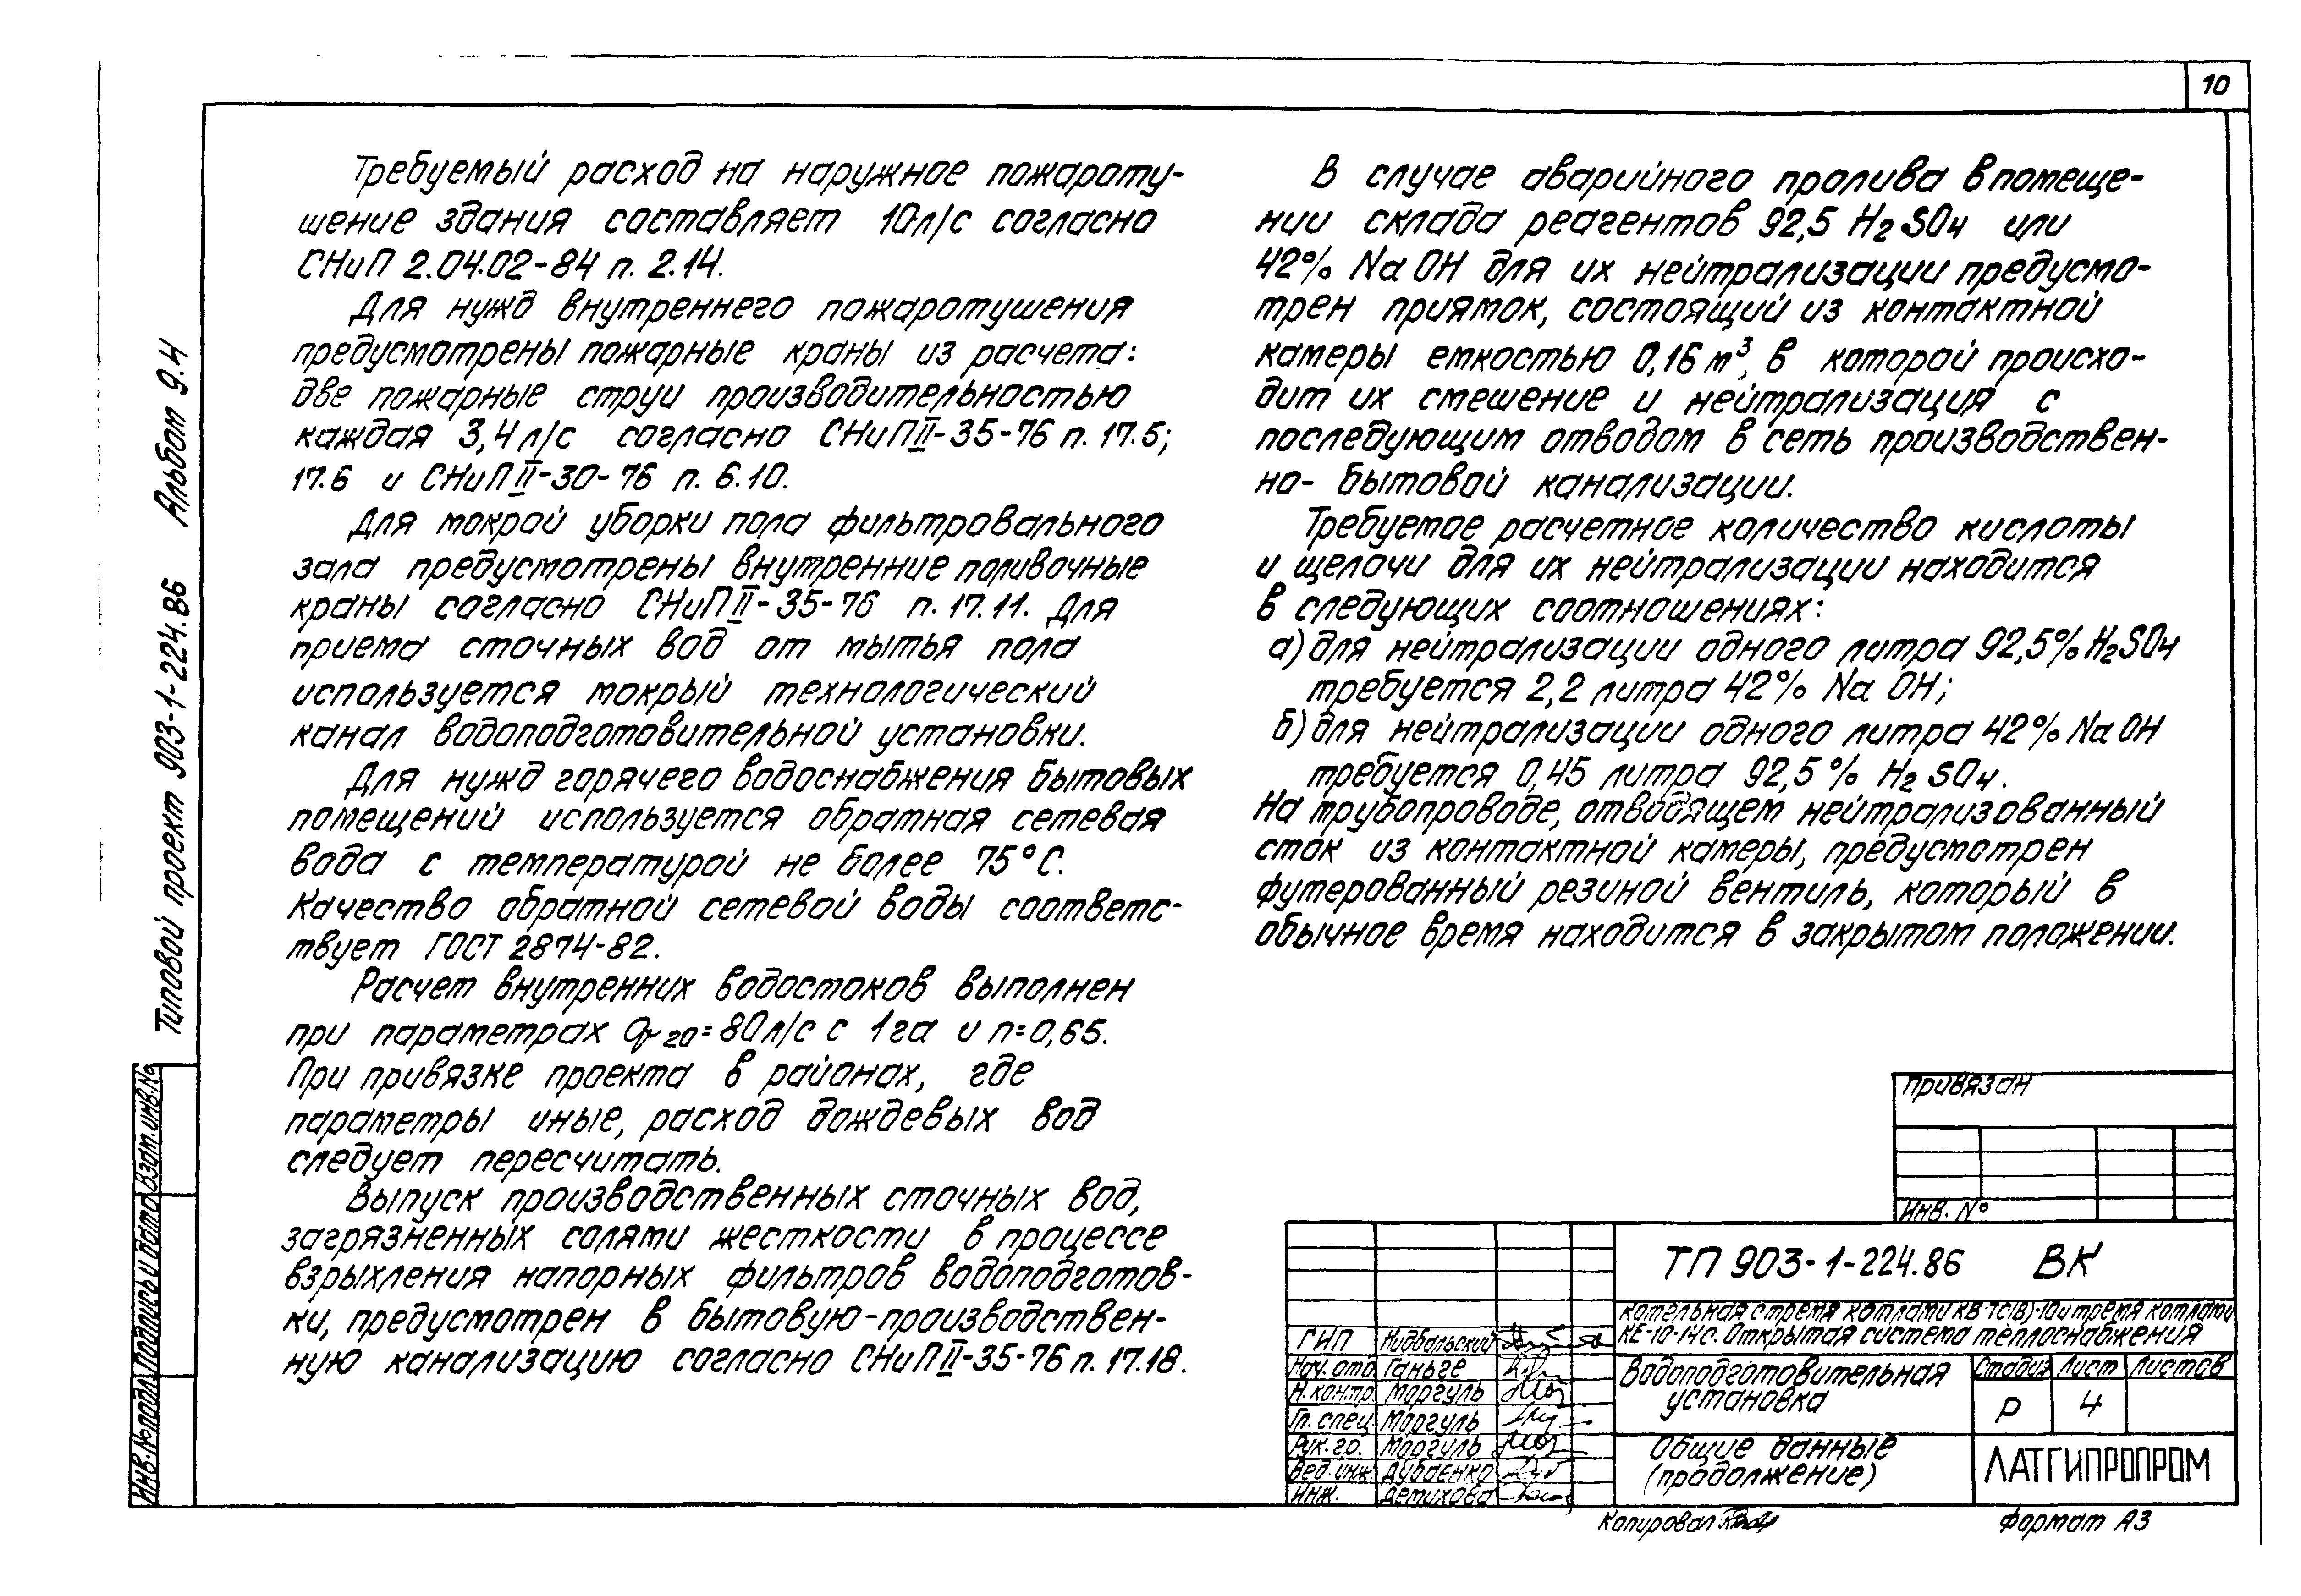 10
Требуемый расход на наружное пожароту-
шение здания составляет 10 л/с согласно
СНиП 2.04.02-84 п. 2.14.
Для нужд внутреннего пожаротушения
предусмотрены пожарные краны из расчета:
две пожарные струи производительностью
каждая 3,4 л/с согласно СНиП II-35-76 п. 17.5;
17.6 и СНиП II-30-76 п. 6.10.
Для мокрой уборки пола фильтровального
зала предусмотрены внутренние поливочные
краны согласно СНиП II-35-76 п. 17.11. Для
приема сточных вод от мытья пола
используется мокрый технологический
канал водоподготовительной установки.
Для нужд горячего водоснабжения бытовых
помещений используется обратная сетевая
вода с температурой не более 75°С.
Качество обратной сетевой воды соответс-
твует ГОСТ 2874-82.
Расчет внутренних водостоков выполнен
при параметрах q20=80л/с с 1га и n=0,65.
При привязке проекта в районах, где
параметры иные, расход дождевых вод
следует пересчитать.
Выпуск производственных сточных вод,
загрязненных солями жесткости в процессе
взрыхления напорных фильтров водоподготов-
ки, предусмотрен в бытовую-производствен-
ную канализацию согласно СНиП II-35-76 п. 17.18.
В случае аварийного пролива в помеще-
нии склада реагентов 92,5 H2SO4 или
42% NaOH для их нейтрализации предусмо-
трен приямок, состоящий из контактной
камеры емкостью 0,16 м³, в которой происхо-
дит их смешение и нейтрализация с
последующим отводом в сеть производствен-
но-бытовой канализации.
Требуемое расчетное количество кислоты
и щелочи для их нейтрализации находится
в следующих соотношениях:
а) для нейтрализации одного литра 92,5% H2SO4
требуется 2,2 литра 42% NaOH;
б) для нейтрализации одного литра 42% NaOH
требуется 0,45 литра 92,5% H2SO4.
На трубопроводе, отводящем нейтрализованный
сток из контактной камеры, предусмотрен
футерованный резиной вентиль, который в
обычное время находится в закрытом положении.
Типовой проект 903-1-224.86 Альбом 9.4
Инв.№подл. Подпись и дата Взам.инв.№
Привязан
Инв. №
ТП 903-1-224.86 ВК
Котельная с тремя котлами КВ-ТС(В)-10 и тремя котлами
КЕ-10-14с. Открытая система теплоснабжения
ГИП Нидбальский
Нач. отд. Ганьге
Н.контр. Моргуль
Гл. спец. Моргуль
Рук. гр. Моргуль
Вед. инж. Дубаенко
Инж. Демихова
Водоподготовительная
установка
Стадия Лист Листов
Р 4
Общие данные
(продолжение)
ЛАТГИПРОПРОМ
Копировал
Формат А3